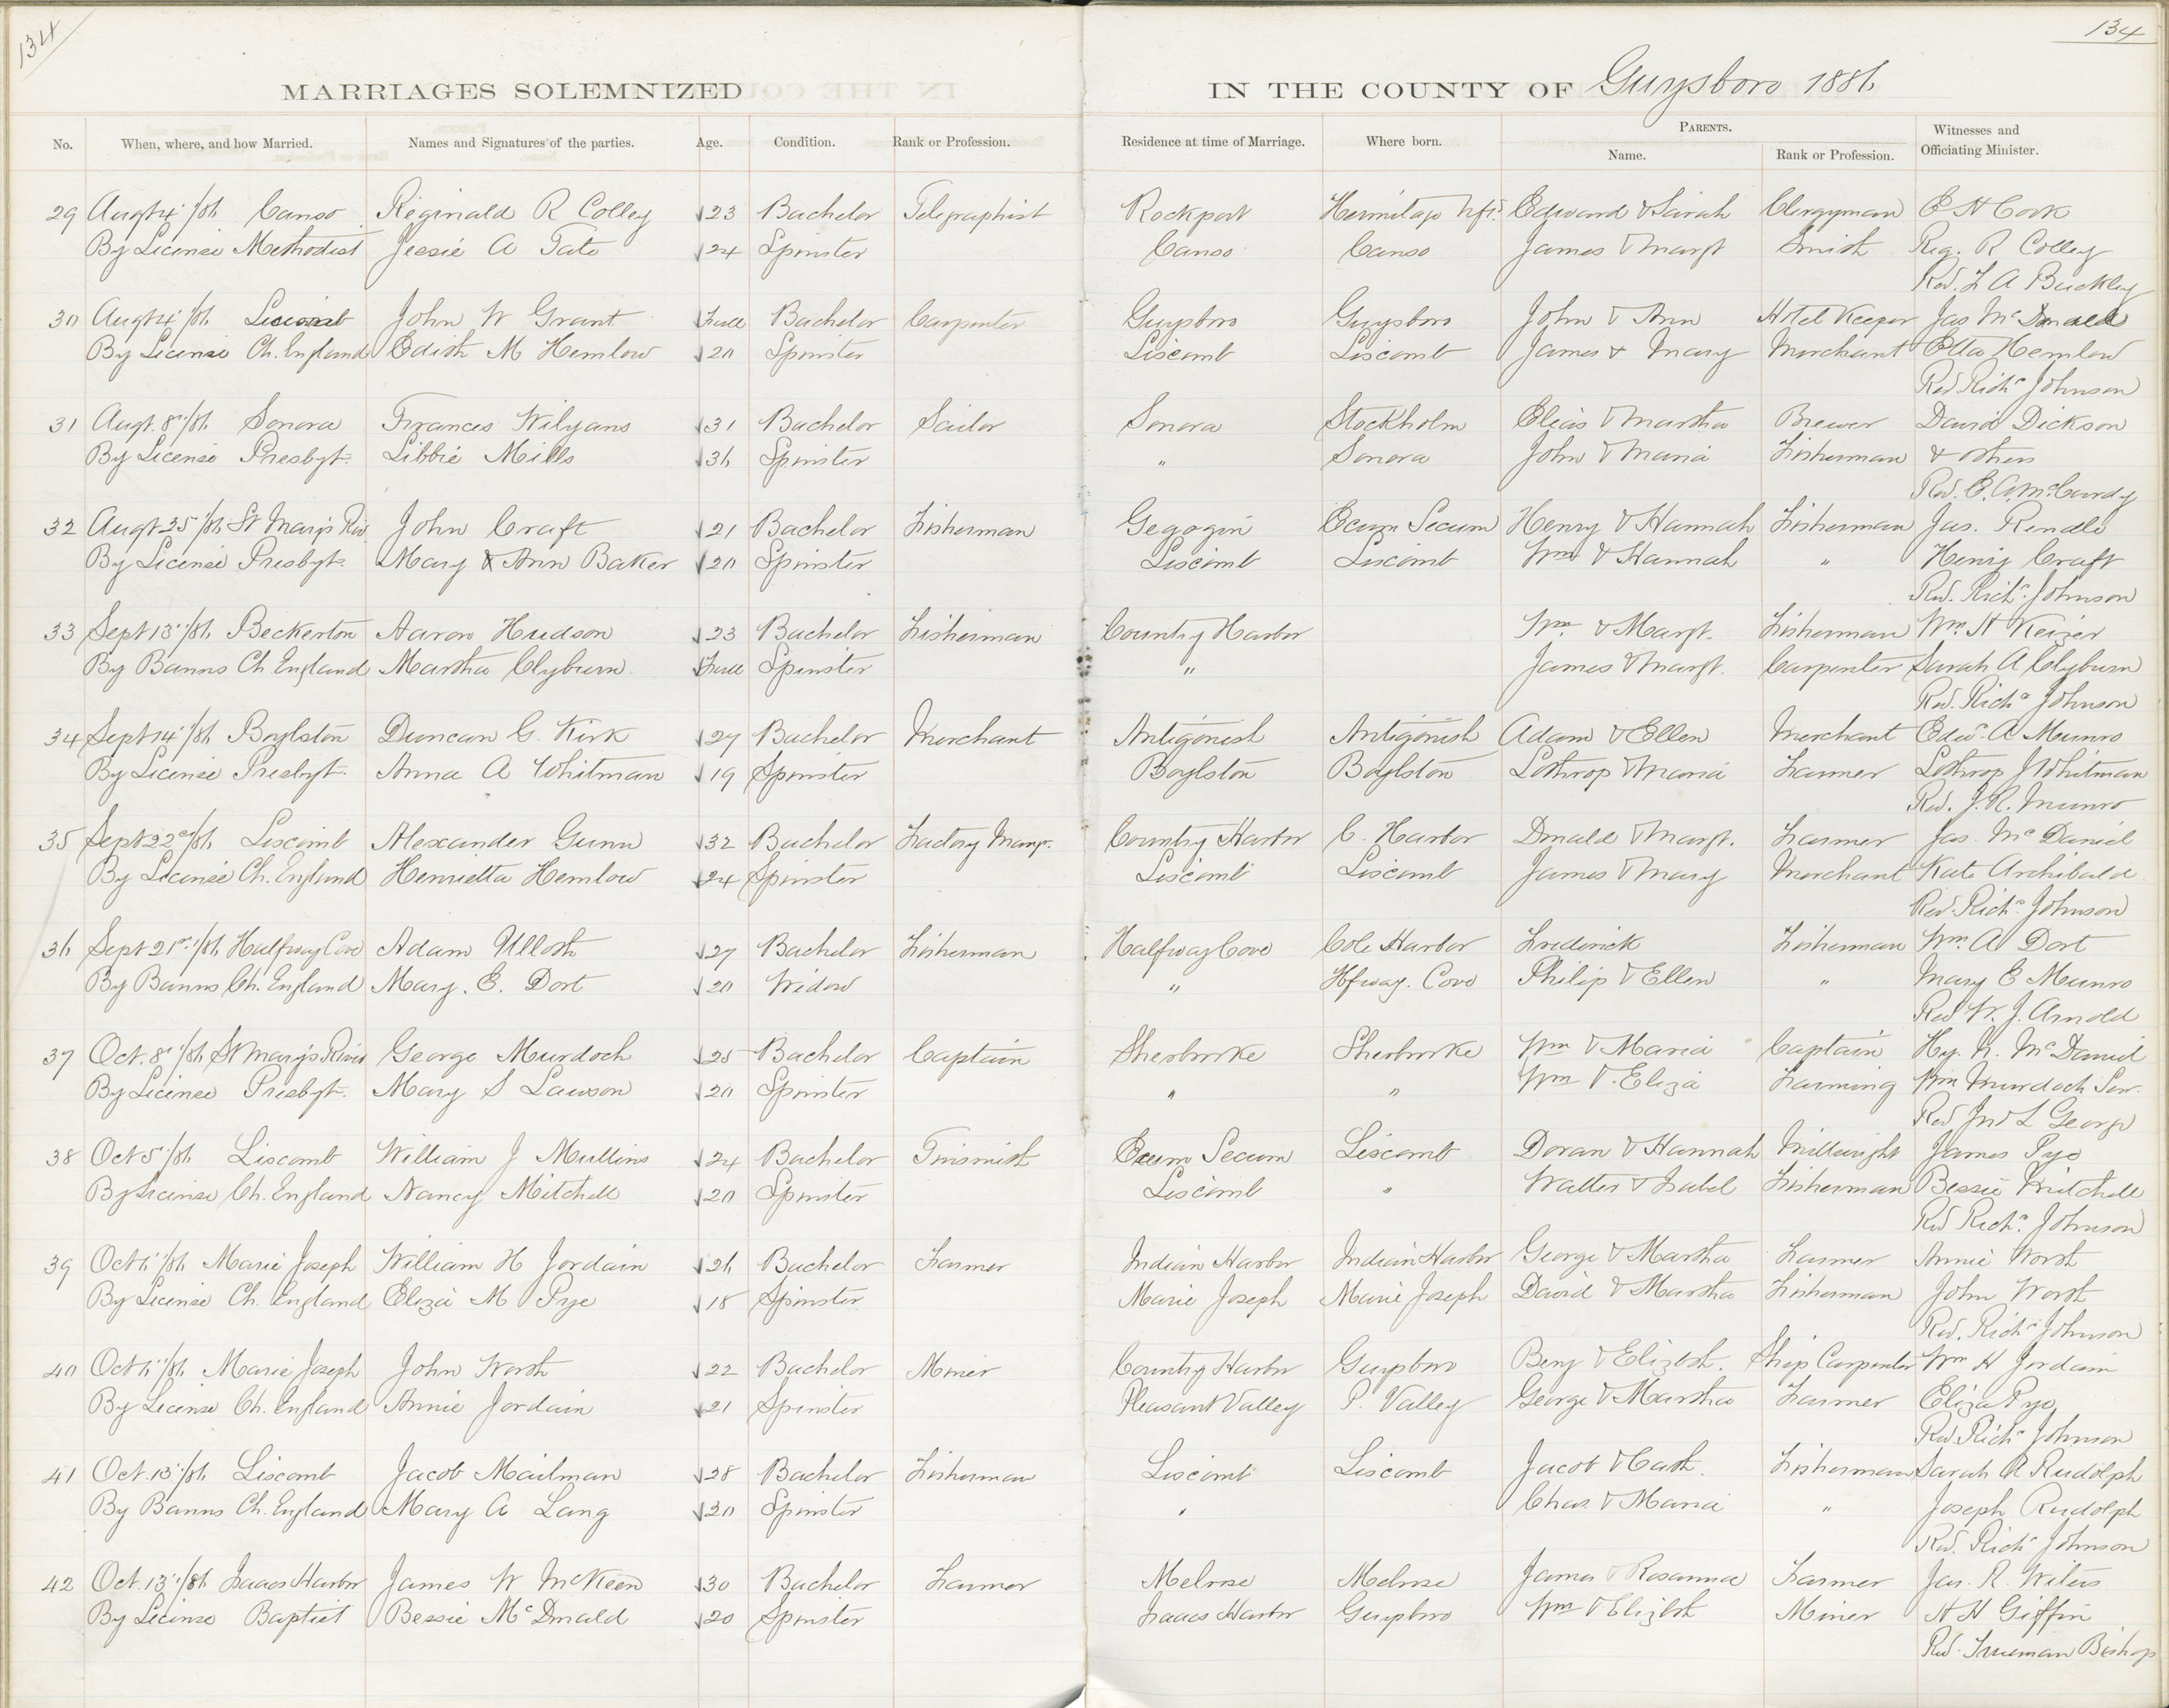 134
134
MARRIAGES SOLEMNIZED IN THE COUNTY OF Guysboro 1886
No. When, where, and how Married. Names and Signatures of the parties. Age. Condition. Rank or Profession. Residence at time of Marriage. Where born. PARENTS. Name. Rank or Profession. Witnesses and Officiating Minister.
29 Augt 4"/86 Canso Reginald R Colley 23 Bachelor Telegraphist Rockport Hermitage Nfd. Edward & Sarah Clergyman E H Cook
By License Methodist Jessie A Tate 24 Spinster Canso Canso James & Margt Smith Reg. R Colley
Rev. L A Buckley
30 Augt 4"/86 Liscomb John W Grant Full Bachelor Carpenter Guysboro Guysboro John & Ann Hotel Keeper Jas McDonald
By License Ch. England Edith M Hemlow 20 Spinster Liscomb Liscomb James & Mary Merchant Etta Hemlow
Rev. Richd Johnson
31 Augt. 8"/86 Sonora Frances Wilyans 31 Bachelor Sailor Sonora Stockholm Elias & Martha Brewer David Dickson
By License Presbyt. Libbie Mills 36 Spinster " Sonora John & Maria Fisherman & others
Rev. E. A. McCurdy
32 Augt 25"/86 St Marys Riv John Craft 21 Bachelor Fisherman Gegogin Ecum Secum Henry & Hannah Fisherman Jas. Rendle
By License Presbyt. Mary Ann Baker 20 Spinster Liscomb Liscomb Wm & Hannah " Henry Craft
Rev. Richd. Johnson
33 Sept 13"/86 Beckerton Aaron Hudson 23 Bachelor Fisherman Country Harbor Wm. & Margt. Fisherman Wm. H Keizer
By Banns Ch England Martha Clyburn Full Spinster " James & Margt. Carpenter Sarah A Clyburn
Rev. Richd Johnson
34 Sept 14"/86 Boylston Duncan G. Kirk 27 Bachelor Merchant Antigonish Antigonish Adam & Ellen Merchant Edwd. A Munro
By License Presbyt. Anna A Whitman 19 Spinster Boylston Boylston Lothrop & Maria Farmer Lothrop J Whitman
Rev. J. R. Munro
35 Sept 22nd/86 Liscomb Alexander Gunn 32 Bachelor Factory Mangr. Country Harbor C. Harbor Donald & Margt. Farmer Jas. McDaniel
By License Ch. England Henrietta Hemlow 24 Spinster Liscomb Liscomb James & Mary Merchant Kate Archibald
Rev. Richd. Johnson
36 Sept 21st/86 Halfway Cove Adam Ulloth 27 Bachelor Fisherman Halfway Cove Cole Harbor Frederick Fisherman Wm. A Dort
By Banns Ch. England Mary. E. Dort 20 Widow " Hfway. Cove Philip & Ellen " Mary E Munro
Rev W. J. Arnold
37 Oct. 8"/86 St Marys River George Murdoch 25 Bachelor Captain Sherbrooke Sherbrooke Wm & Maria Captain Hy. N. McDaniel
By License Presbyt. Mary S Lawson 20 Spinster " " Wm & Eliza Farming Wm Murdoch Senr.
Rev Jno L George
38 Oct 5"/86 Liscomb William J Mullins 24 Bachelor Tinsmith Ecum Secum Liscomb Doran & Hannah Millwright James Pye
By License Ch. England Nancy Mitchell 20 Spinster Liscomb " Walter & Isabel Fisherman Bessie Mitchell
Rev Richd. Johnson
39 Oct 6"/86 Marie Joseph William H Jordain 26 Bachelor Farmer Indian Harbor Indian Harbor George & Martha Farmer Annie Worth
By License Ch. England Eliza M Pye 18 Spinster Marie Joseph Marie Joseph David & Martha Fisherman John Worth
Rev. Richd Johnson
40 Oct 6"/86 Marie Joseph John Worth 22 Bachelor Miner Country Harbor Guysboro Benj & Elizbth. Ship Carpenter Wm H Jordain
By License Ch. England Annie Jordain 21 Spinster Pleasant Valley P. Valley George & Martha Farmer Eliza Pye
Rev. Richd Johnson
41 Oct. 13"/86 Liscomb Jacob Mailman 28 Bachelor Fisherman Liscomb Liscomb Jacob & Cath. Fisherman Sarah R Rudolph
By Banns Ch. England Mary A Lang 20 Spinster " Chas. & Maria " Joseph Rudolph
Rev. Richd Johnson
42 Oct. 13"/86 Isaacs Harbor James W McKeen 30 Bachelor Farmer Melrose Melrose James & Rosanna Farmer Jas. R. Wilers
By License Baptist Bessie McDonald 20 Spinster Isaacs Harbor Guysboro Wm & Elizbth Miner H H Giffin
Rev. Trueman Bishop